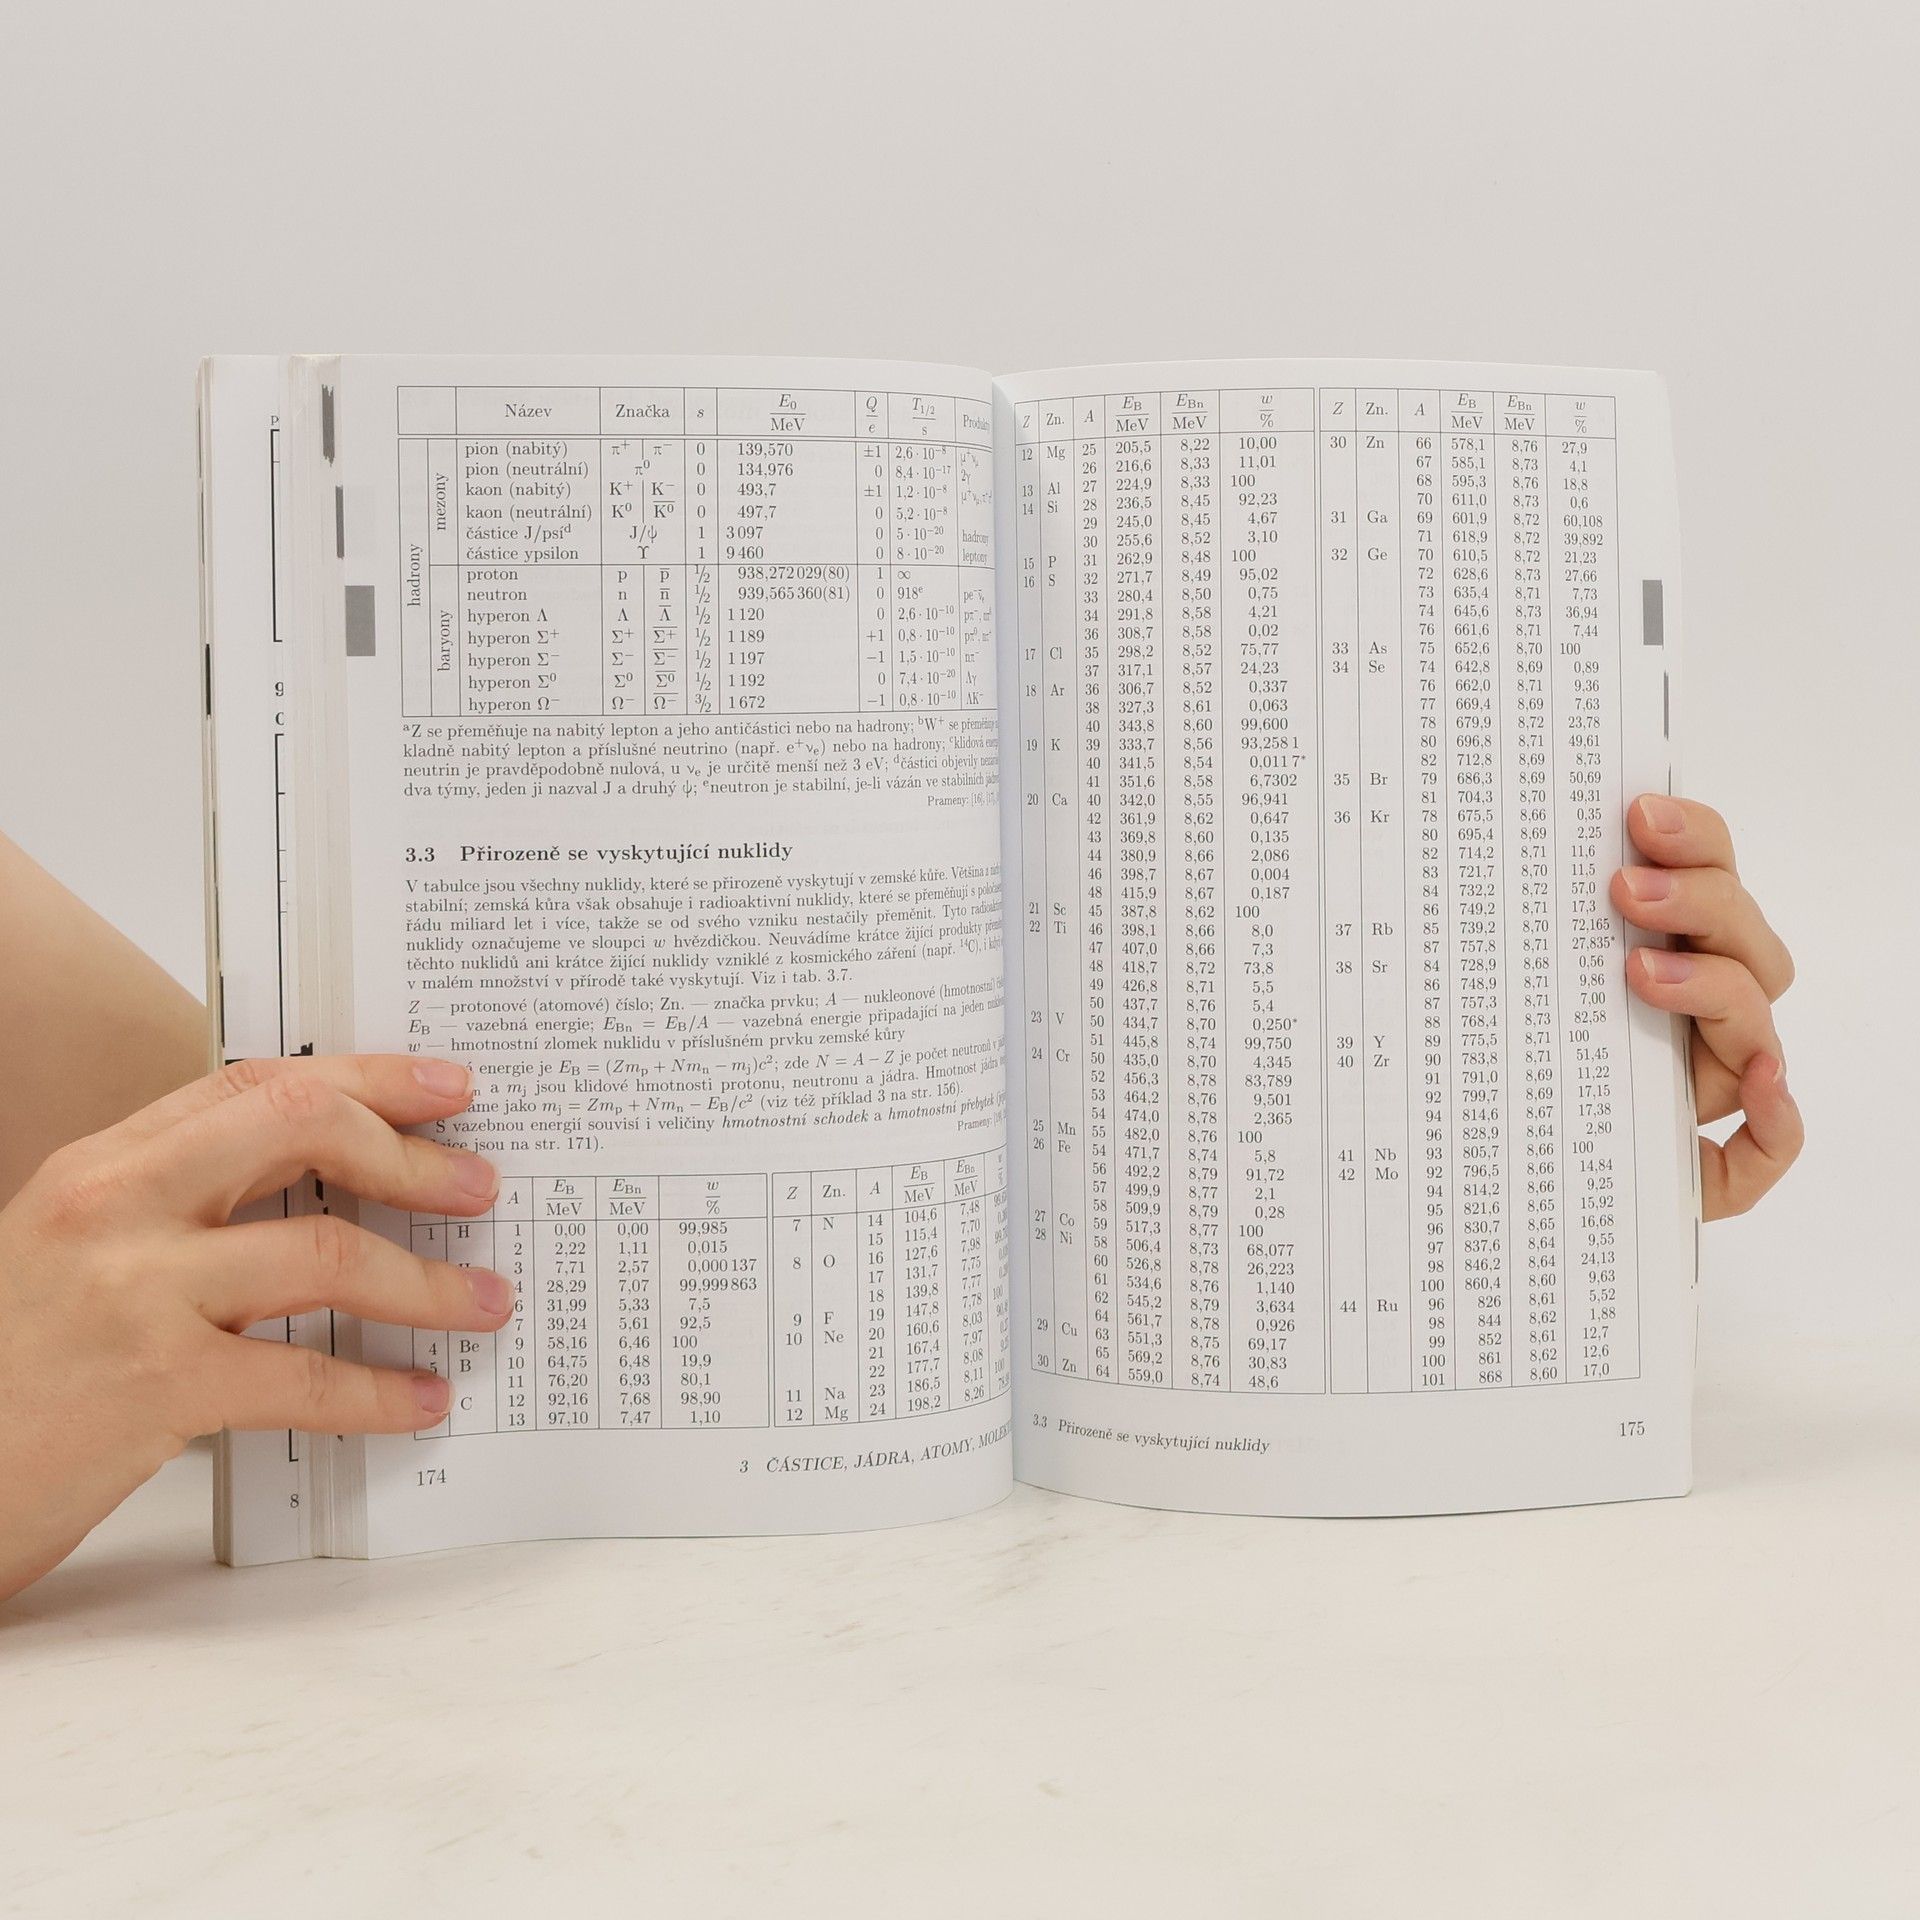 Název Značka s E₀/MeV Q/e T₁/₂/s
hadrony
mezony
pion (nabitý) π⁺ π⁻ 0 139,570 ±1 2,6·10⁻⁸
pion (neutrální) π⁰ 0 134,976 0 8,4·10⁻¹⁷ 2γ
kaon (nabitý) K⁺ K⁻ 0 493,7 ±1 1,2·10⁻⁸
kaon (neutrální) K⁰ K̅⁰ 0 497,7 0 5,2·10⁻⁸
částice J/psíᵈ J/ψ 1 3 097 0 5·10⁻²⁰ hadrony
částice ypsilon ϒ 1 9 460 0 8·10⁻²⁰ leptony
baryony
proton p p̅ 1/2 938,272 029(80) 1 ∞
neutron n n̅ 1/2 939,565 360(81) 0 918ᵉ
hyperon Λ Λ Λ̅ 1/2 1 120 0 2,6·10⁻¹⁰
hyperon Σ⁺ Σ⁺ Σ̅⁺ 1/2 1 189 +1 0,8·10⁻¹⁰
hyperon Σ⁻ Σ⁻ Σ̅⁻ 1/2 1 197 −1 1,5·10⁻¹⁰ nπ⁻
hyperon Σ⁰ Σ⁰ Σ̅⁰ 1/2 1 192 0 7,4·10⁻²⁰ Λγ
hyperon Ω⁻ Ω⁻ Ω̅⁻ 3/2 1 672 −1 0,8·10⁻¹⁰ ΛK⁻
ᵃZ se přeměňuje na nabitý lepton a jeho antičástici nebo na hadrony; ᵇW⁺ se
kladně nabitý lepton a příslušné neutrino (např. e⁺νₑ) nebo na hadrony; ᶜklidová
neutrin je pravděpodobně nulová, u νₑ je určitě menší než 3 eV; ᵈčástici objevily
dva týmy, jeden ji nazval J a druhý ψ; ᵉneutron je stabilní, je-li vázán ve stabilních
Prameny: [16],
3.3 Přirozeně se vyskytující nuklidy
V tabulce jsou všechny nuklidy, které se přirozeně vyskytují v zemské kůře. Většina z
stabilní; zemská kůra však obsahuje i radioaktivní nuklidy, které se přeměňují s
řádu miliard let i více, takže se od svého vzniku nestačily přeměnit. Tyto
nuklidy označujeme ve sloupci w hvězdičkou. Neuvádíme krátce žijící produkty
těchto nuklidů ani krátce žijící nuklidy vzniklé z kosmického záření (např. ¹⁴C), i
v malém množství v přírodě také vyskytují. Viz i tab. 3.7.
Z — protonové (atomové) číslo; Zn. — značka prvku; A — nukleonové (hmotnostní)
E_B — vazebná energie; E_Bn = E_B/A — vazebná energie připadající na jeden
w — hmotnostní zlomek nuklidu v příslušném prvku zemské kůry
energie je E_B = (Zmₚ + Nmₙ − mⱼ)c²; zde N = A − Z je počet neutronů v
a mⱼ jsou klidové hmotnosti protonu, neutronu a jádra. Hmotnost jádra
jako mⱼ = Zmₚ + Nmₙ − E_B/c² (viz též příklad 3 na str. 156).
S vazebnou energií souvisí i veličiny hmotnostní schodek a hmotnostní přebytek
jsou na str. 171).
Prameny:
A E_B/MeV E_Bn/MeV w/%
1 H 1 0,00 0,00 99,985
2 2,22 1,11 0,015
3 7,71 2,57 0,000 137
4 28,29 7,07 99,999 863
6 31,99 5,33 7,5
7 39,24 5,61 92,5
4 Be 9 58,16 6,46 100
5 B 10 64,75 6,48 19,9
11 76,20 6,93 80,1
C 12 92,16 7,68 98,90
13 97,10 7,47 1,10
Z Zn. A E_B/MeV E_Bn/MeV
7 N 14 104,6 7,48
15 115,4 7,70
8 O 16 127,6 7,98
17 131,7 7,75
18 139,8 7,77
9 F 19 147,8 7,78 100
10 Ne 20 160,6 8,03
21 167,4 7,97
22 177,7 8,08
11 Na 23 186,5 8,11 100
12 Mg 24 198,2 8,26
174
3 ČÁSTICE, JÁDRA, ATOMY,
8
Z Zn. A E_B/MeV E_Bn/MeV w/%
12 Mg 25 205,5 8,22 10,00
26 216,6 8,33 11,01
13 Al 27 224,9 8,33 100
14 Si 28 236,5 8,45 92,23
29 245,0 8,45 4,67
30 255,6 8,52 3,10
15 P 31 262,9 8,48 100
16 S 32 271,7 8,49 95,02
33 280,4 8,50 0,75
34 291,8 8,58 4,21
36 308,7 8,58 0,02
17 Cl 35 298,2 8,52 75,77
37 317,1 8,57 24,23
18 Ar 36 306,7 8,52 0,337
38 327,3 8,61 0,063
40 343,8 8,60 99,600
19 K 39 333,7 8,56 93,258 1
40 341,5 8,54 0,011 7*
41 351,6 8,58 6,7302
20 Ca 40 342,0 8,55 96,941
42 361,9 8,62 0,647
43 369,8 8,60 0,135
44 380,9 8,66 2,086
46 398,7 8,67 0,004
48 415,9 8,67 0,187
21 Sc 45 387,8 8,62 100
22 Ti 46 398,1 8,66 8,0
47 407,0 8,66 7,3
48 418,7 8,72 73,8
49 426,8 8,71 5,5
50 437,7 8,76 5,4
23 V 50 434,7 8,70 0,250*
51 445,8 8,74 99,750
24 Cr 50 435,0 8,70 4,345
52 456,3 8,78 83,789
53 464,2 8,76 9,501
54 474,0 8,78 2,365
25 Mn 55 482,0 8,76 100
26 Fe 54 471,7 8,74 5,8
56 492,2 8,79 91,72
57 499,9 8,77 2,1
58 509,9 8,79 0,28
27 Co 59 517,3 8,77 100
28 Ni 58 506,4 8,73 68,077
60 526,8 8,78 26,223
61 534,6 8,76 1,140
62 545,2 8,79 3,634
64 561,7 8,78 0,926
29 Cu 63 551,3 8,75 69,17
65 569,2 8,76 30,83
30 Zn 64 559,0 8,74 48,6
Z Zn. A E_B/MeV E_Bn/MeV w/%
30 Zn 66 578,1 8,76 27,9
67 585,1 8,73 4,1
68 595,3 8,76 18,8
70 611,0 8,73 0,6
31 Ga 69 601,9 8,72 60,108
71 618,9 8,72 39,892
32 Ge 70 610,5 8,72 21,23
72 628,6 8,73 27,66
73 635,4 8,71 7,73
74 645,6 8,73 36,94
76 661,6 8,71 7,44
33 As 75 652,6 8,70 100
34 Se 74 642,8 8,69 0,89
76 662,0 8,71 9,36
77 669,4 8,69 7,63
78 679,9 8,72 23,78
80 696,8 8,71 49,61
82 712,8 8,69 8,73
35 Br 79 686,3 8,69 50,69
81 704,3 8,70 49,31
36 Kr 78 675,5 8,66 0,35
80 695,4 8,69 2,25
82 714,2 8,71 11,6
83 721,7 8,70 11,5
84 732,2 8,72 57,0
86 749,2 8,71 17,3
37 Rb 85 739,2 8,70 72,165
87 757,8 8,71 27,835*
38 Sr 84 728,9 8,68 0,56
86 748,9 8,71 9,86
87 757,3 8,71 7,00
88 768,4 8,73 82,58
39 Y 89 775,5 8,71 100
40 Zr 90 783,8 8,71 51,45
91 791,0 8,69 11,22
92 799,7 8,69 17,15
94 814,6 8,67 17,38
96 828,9 8,64 2,80
41 Nb 93 805,7 8,66 100
42 Mo 92 796,5 8,66 14,84
94 814,2 8,66 9,25
95 821,6 8,65 15,92
96 830,7 8,65 16,68
97 837,6 8,64 9,55
98 846,2 8,64 24,13
100 860,4 8,60 9,63
44 Ru 96 826 8,61 5,52
98 844 8,62 1,88
99 852 8,61 12,7
100 861 8,62 12,6
101 868 8,60 17,0
3.3 Přirozeně se vyskytující nuklidy
175